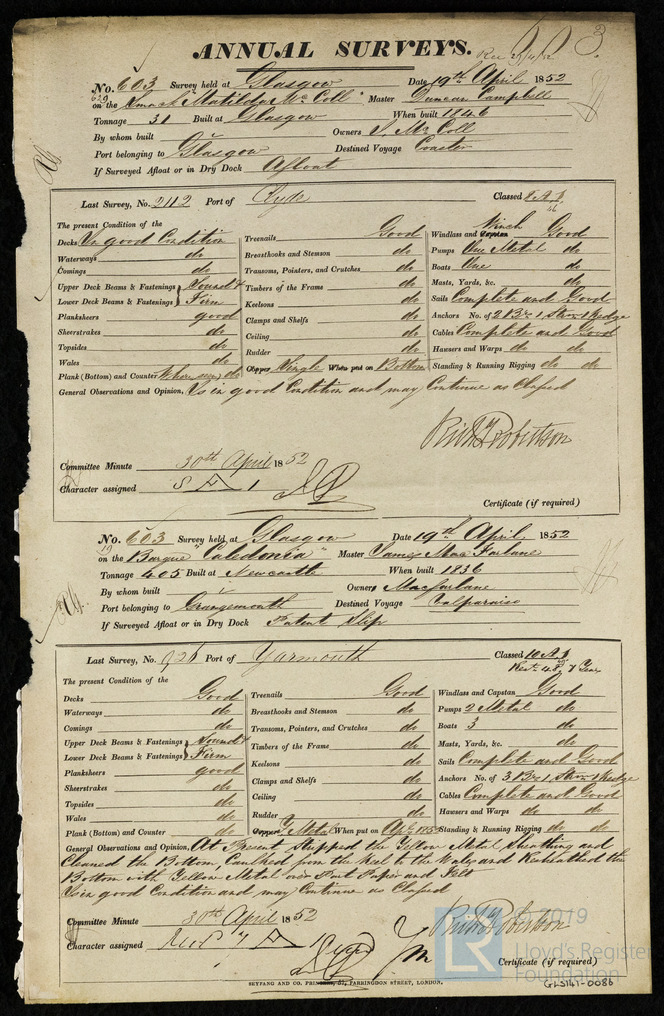 ANNUAL SURVEYS.
3
No. 603 Survey held at Glasgow Date 19th April 1852
on the Smack "Matilda McColl" Master Duncan Campbell
Tonnage 31 Built at Glasgow When built 1846
By whom built Owners J. McColl
Port belonging to Glasgow Destined Voyage Coaster
If Surveyed Afloat or in Dry Dock Afloat
Last Survey, No. 2112 Port of Clyde Classed 8 A 1
46
The present Condition of the
Decks In good Condition
Waterways do
Comings do
Upper Deck Beams & Fastenings Sound &
Lower Deck Beams & Fastenings Firm
Planksheers good
Sheerstrakes do
Topsides do
Wales do
Plank (Bottom) and Counter Where seen do
Treenails Good
Breasthooks and Stemson do
Transoms, Pointers, and Crutches do
Timbers of the Frame do
Keelsons do
Clamps and Shelfs do
Ceiling do
Rudder do
Copper Single When put on Bottom
Winch
Windlass and Capstan Good
Pumps One Metal do
Boats One do
Masts, Yards, &c. do
Sails Complete and Good
Anchors No. of 2 Br 1 Strm 1 Kedge
Cables Complete and Good
Hawsers and Warps do do
Standing & Running Rigging do do
General Observations and Opinion, Is in good Condition and may Continue as Classed
Robertson
Committee Minute 30th April 1852
Character assigned 8 A 1
Certificate (if required)
No. 603 Survey held at Glasgow Date 19th April 1852
on the Barque "Caledonia" Master James MacFarlane
Tonnage 405 Built at Newcastle When built 1836
By whom built Owners Macfarlane
Port belonging to Grangemouth Destined Voyage Valparaiso
If Surveyed Afloat or in Dry Dock Patent Slip
Last Survey, No. 926 Port of Yarmouth Classed 10 A 1
Rest. 48, 7 Years
The present Condition of the
Decks Good
Waterways do
Comings do
Upper Deck Beams & Fastenings Sound &
Lower Deck Beams & Fastenings Firm
Planksheers good
Sheerstrakes do
Topsides do
Wales do
Plank (Bottom) and Counter do
Treenails Good
Breasthooks and Stemson do
Transoms, Pointers, and Crutches do
Timbers of the Frame do
Keelsons do
Clamps and Shelfs do
Ceiling do
Rudder do
Copper Y Metal When put on Apl. 1852
Windlass and Capstan Good
Pumps 2 Metal do
Boats 3 do
Masts, Yards, &c. do
Sails Complete and Good
Anchors No. of 3 Br 1 Strm 1 Kedge
Cables Complete and Good
Hawsers and Warps do do
Standing & Running Rigging do do
General Observations and Opinion, At Present Stripped the Yellow Metal Sheathing and
Cleaned the Bottom, Caulked from the Keel to the Wales and Resheathed the
Bottom with Yellow Metal over Paper and Felt
Is in good Condition and may Continue as Classed
Robertson
Committee Minute 30th April 1852
Character assigned 7 A 1
Certificate (if required)
SEYFANG AND CO. PRINTERS, 57, FARRINGDON STREET, LONDON.
© 2019
LR
Lloyd's Register
Foundation
GLS141-0086